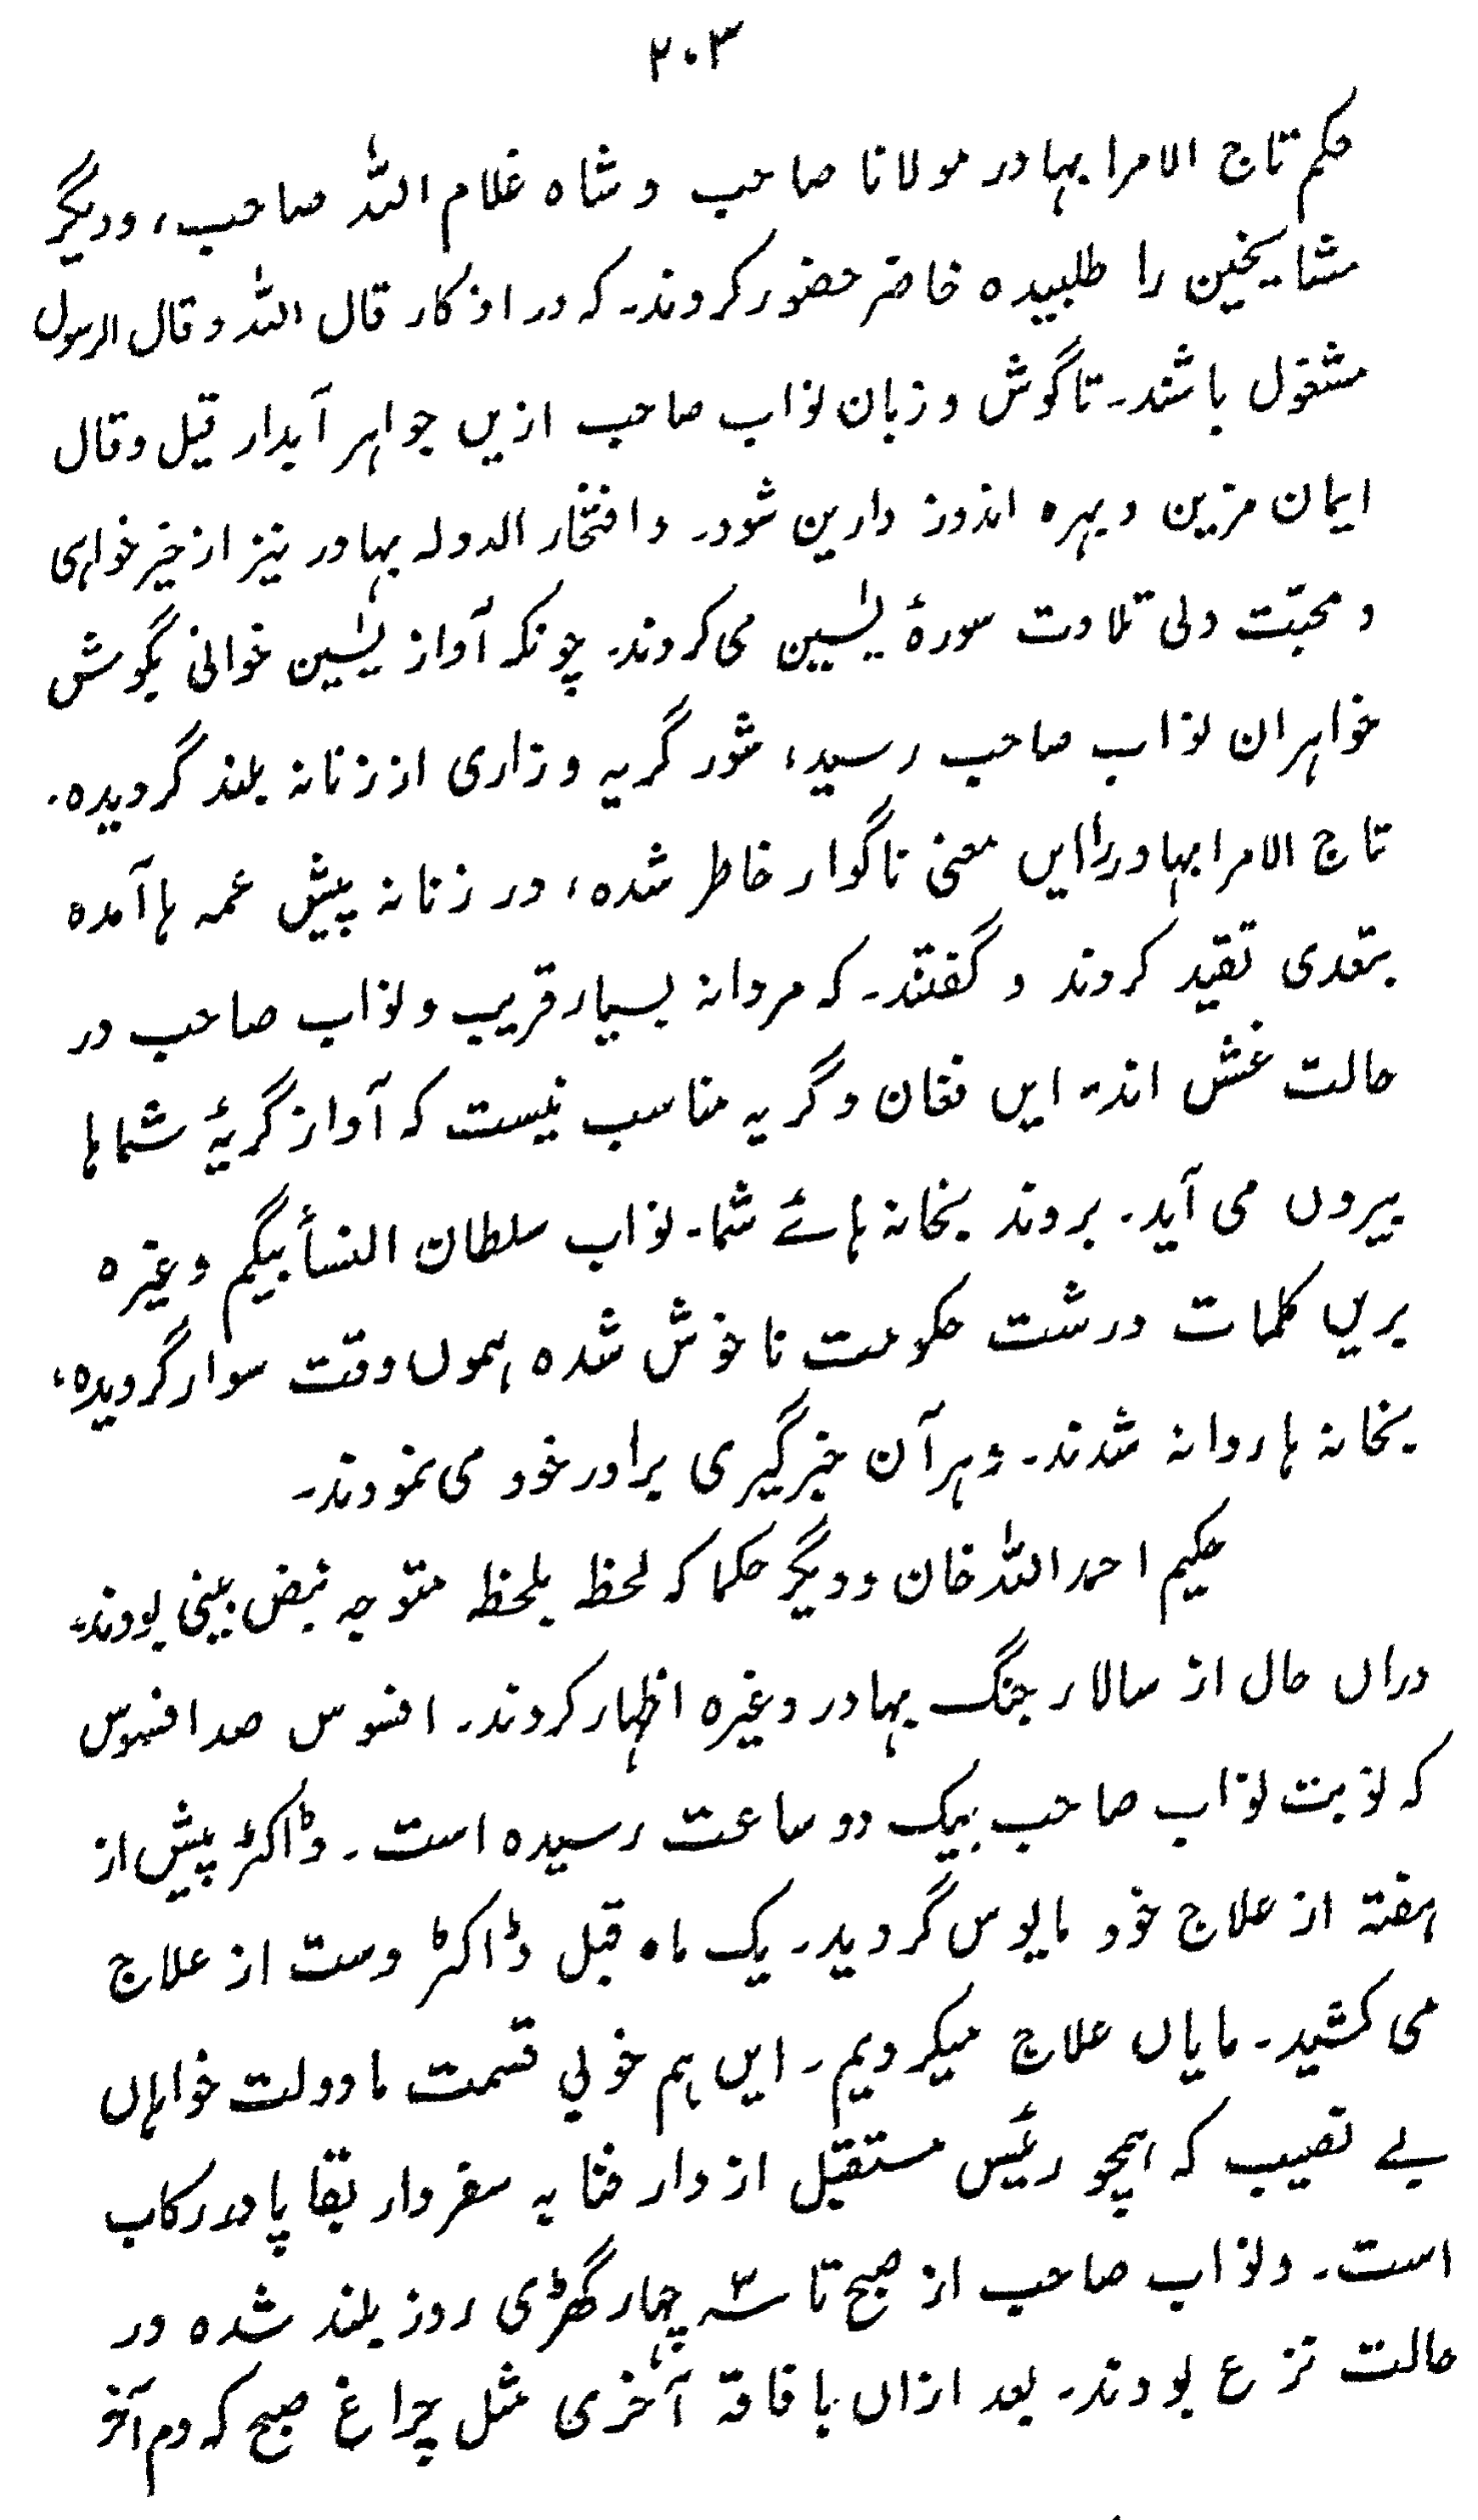 ۲۰۳
حکم تاج الامرا بہادر مولانا صاحب و شاہ غلام اللہ صاحب، و دیگر
مشایخین را طلبیدہ حاضر حضور کردند۔ کہ در اذکار قال اللہ و قال الرسول
مشغول باشند۔ تا گوش و زبان نواب صاحب ازیں جواہر آبدار قیل و قال
ایمان مزین و بہرہ اندوز دارین شود۔ و افتخار الدولہ بہادر نیز از خیر خواہی
و محبّت دلی تلاوت سورۂ یٰسین می کردند۔ چونکہ آواز یٰسین خوانی بگوش
خواہران نواب صاحب رسید، شور گریہ و زاری از زنانہ بلند گردیدہ۔
تاج الامرا بہادر را ایں معنی ناگوار خاطر شدہ، در زنانہ پیش عمہ ہا آمدہ
بتعدی تقید کردند و گفتند۔ کہ مردانہ بسیار قریب و نواب صاحب در
حالت غش اند۔ ایں فغان و گریہ مناسب نیست کہ آواز گریۂ شماہا
بیروں می آید۔ بروند بخانہ ہائے شما۔ نواب سلطان النسأ بیگم وغیرہ
بریں کلمات درشت حکومت ناخوش شدہ ہموں وقت سوار گردیدہ،
بخانہ ہا روانہ شدند۔ و ہر آن خبرگیری برادر خود می نمودند۔
حکیم احمد اللہ خان و دیگر حکما کہ لحظہ بلحظہ متوجہ نبض بینی بودند،
دراں حال از سالار جنگ بہادر وغیرہ اظہار کردند۔ افسوس صد افسوس
کہ نوبت نواب صاحب بیک دو ساعت رسیدہ است۔ ڈاکٹر پیش از
ہفتہ از علاج خود مایوس گردید۔ یک ماہ قبل ڈاکٹر دست از علاج
می کشید۔ مایاں علاج میکردیم۔ ایں ہم خوبی قسمت ما دولت خواہاں
بے نصیب کہ ہمچو رئیس مستقبل از دار فنا بہ سفر دار بقا پا در رکاب
است۔ و نواب صاحب از صبح تا سہ چہار گھڑی روز بلند شدہ در
حالت نزع بودند۔ بعد ازاں بافاقۂ آخری مثل چراغ صبح کہ دم آخر